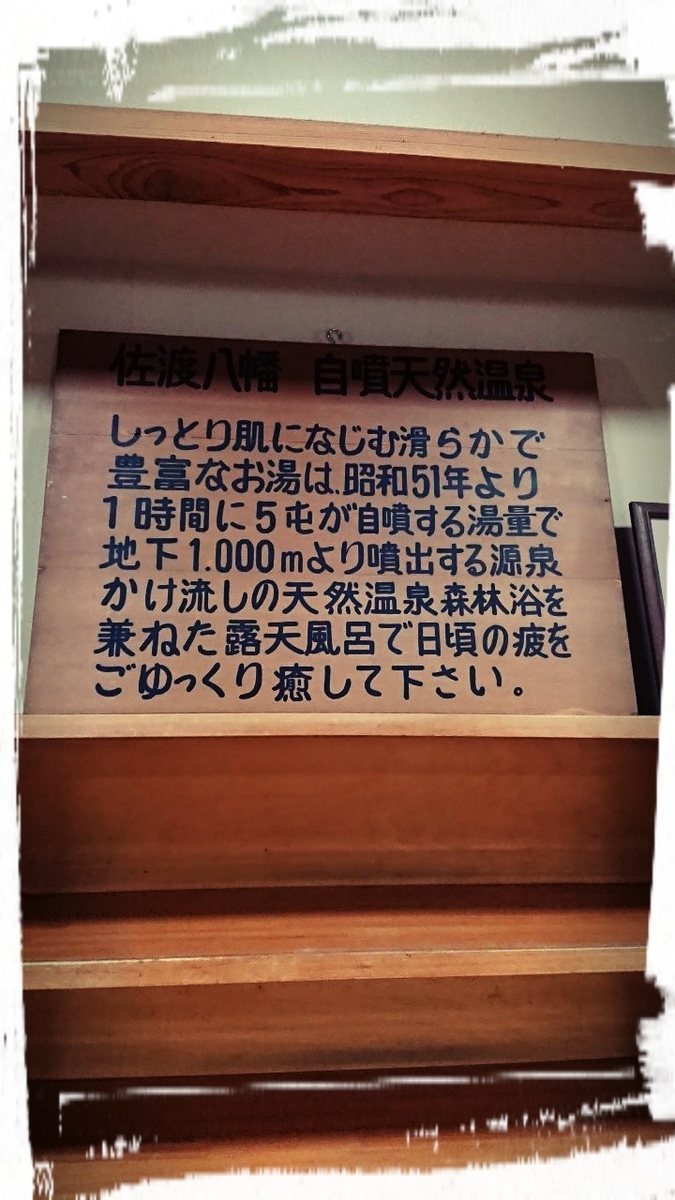 佐渡八幡 自噴天然温泉
しっとり肌になじむ滑らかで
豊富なお湯は、昭和51年より
1時間に5屯が自噴する湯量で
地下1.000mより噴出する源泉
かけ流しの天然温泉森林浴を
兼ねた露天風呂で日頃の疲を
ごゆっくり癒して下さい。